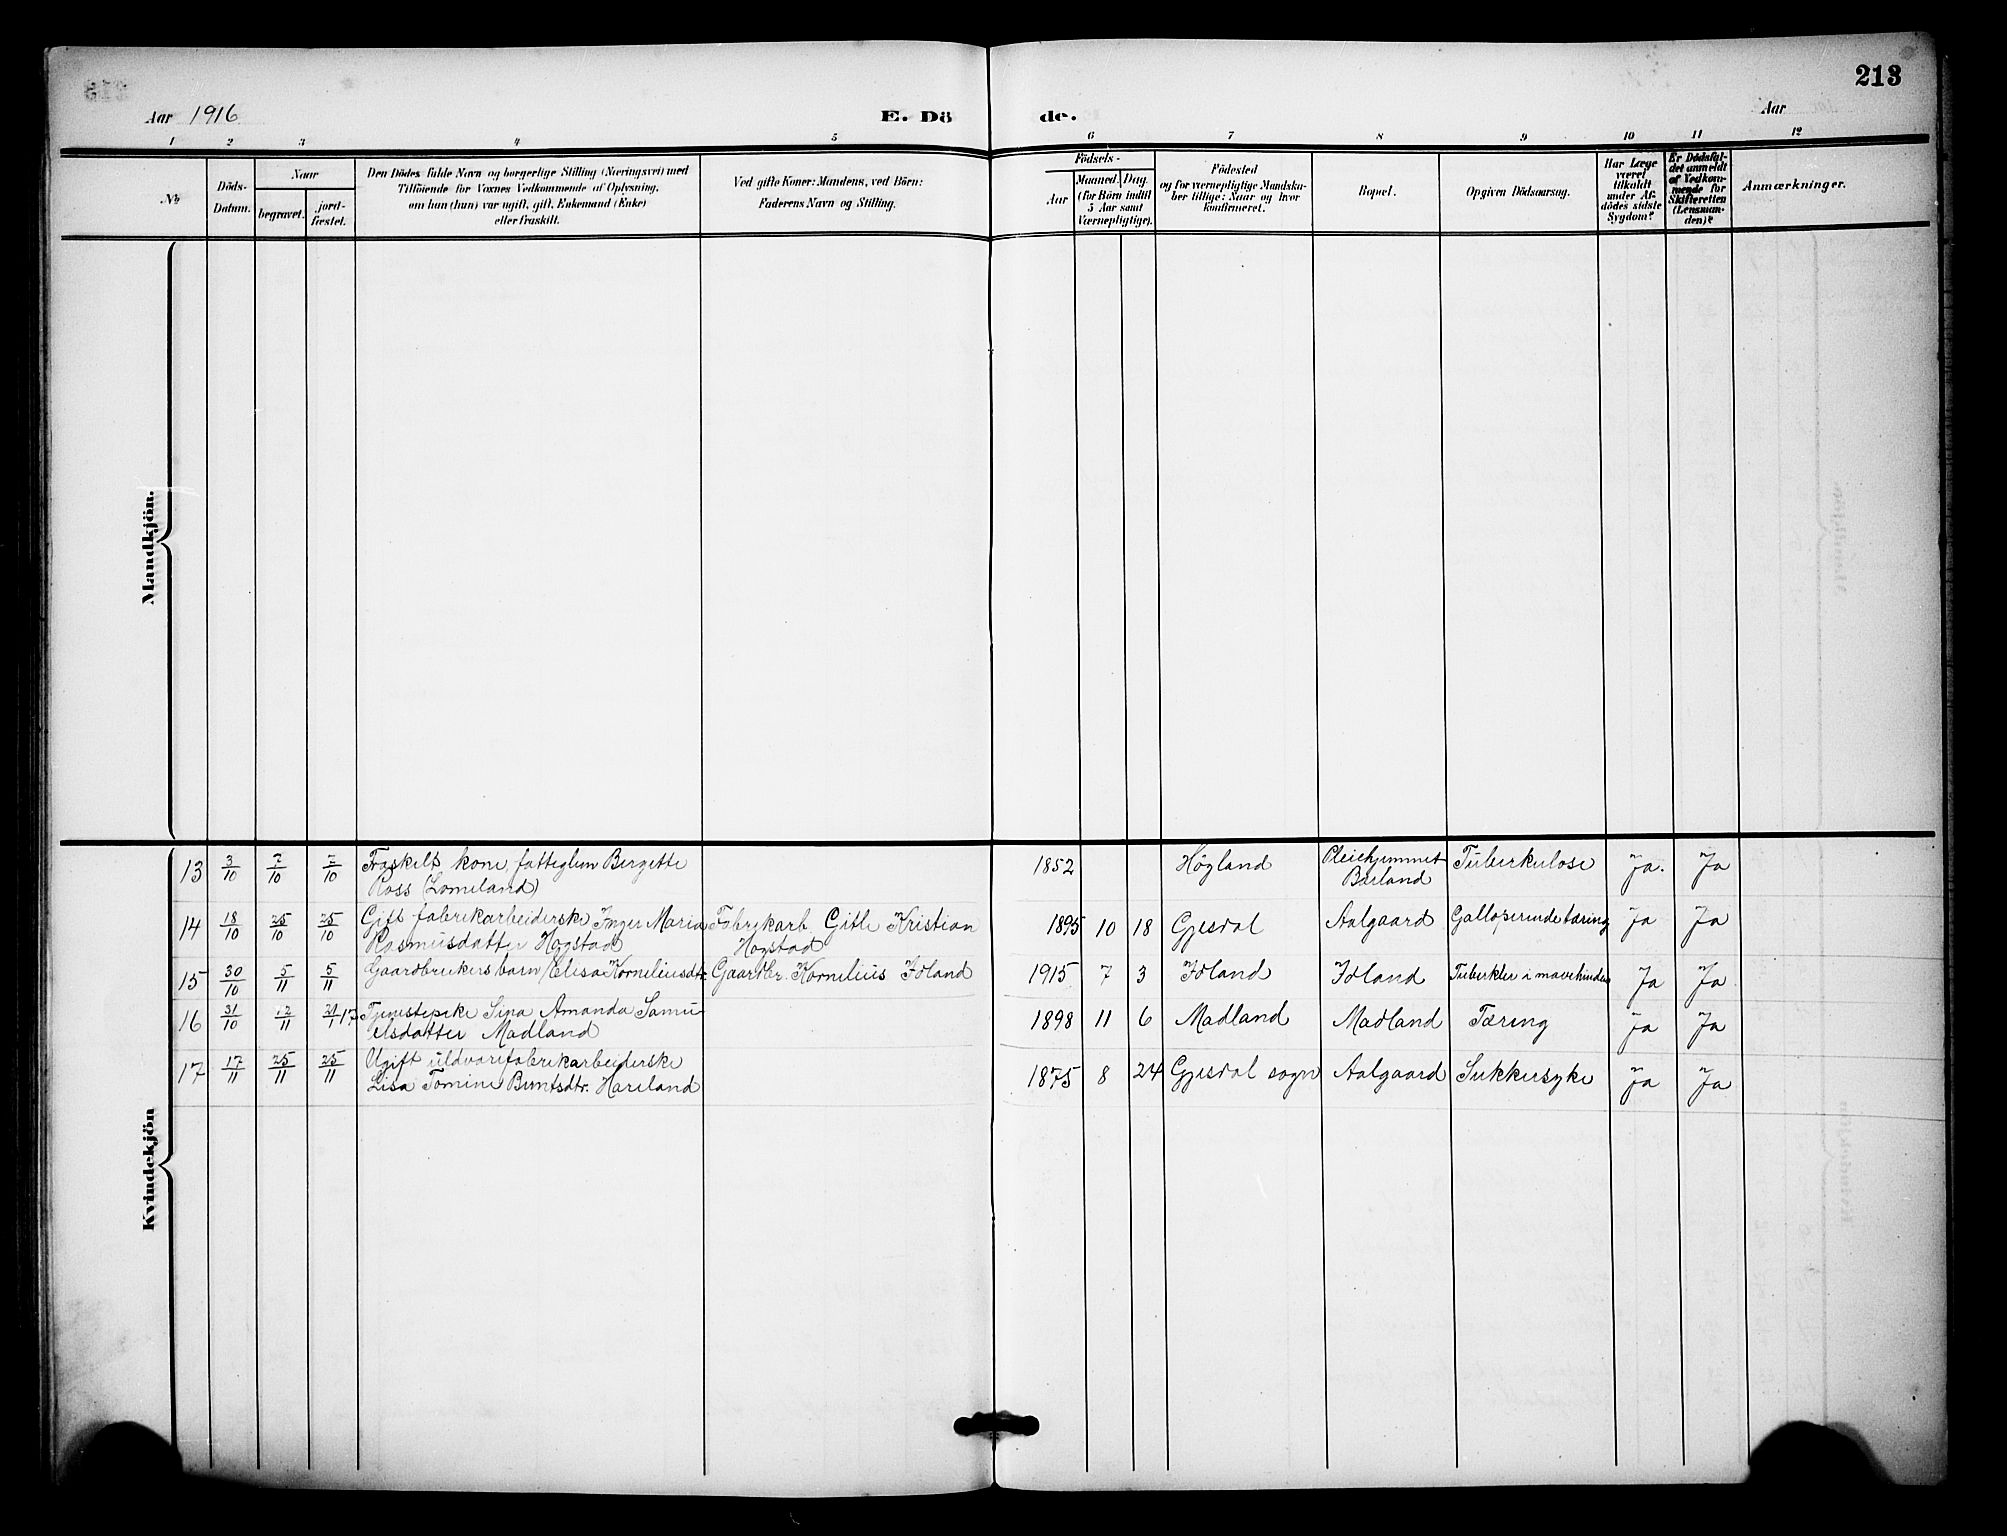 213
Aar 1916
E. Dö de.
Aar
1 2 3 4 5 6 7 8 9 10 11 12
№
Döds-
Datum.
Naar
begravet.
jord-
fæstet.
Den Dödes fulde Navn og borgerlige Stilling (Næringsvei) med
Tilföiende for Voxnes Vedkommende af Oplysning,
om han (hun) var ugift, gift, Enkemand (Enke)
eller fraskilt.
Ved gifte Koner: Mandens, ved Börn:
Faderens Navn og Stilling.
Födsels-
Aar
Maaned. Dag.
(for Börn indtil
5 Aar samt
Værnepligtige).
Födested
og for værnepligtige Mandska-
ber tillige: Naar og hvor
konfirmeret.
Bopæl.
Opgiven Dödsaarsag.
Har Læge
været
tilkaldt
under Af-
dödes sidste
Sygdom?
Er Dödsfal-
det anmeldt
af Vedkom-
mende for
Skifteretten
(Lensman-
den)?
Anmærkninger.
Mandkjön.
Kvindekjön
13 3/10 7/10 7/10 Fraskelt kone, fattiglem Bergette 1852 Høgland Pleiehjemmet Tuberkulose Ja. Ja
Ross (Lomeland) Bærland
14 18/10 25/10 25/10 Gift fabrikarbeiderske Inger Maria Fabrykarb. Gitle Kristian 1895 10 18 Gjesdal Aalgaard Galloperende tæring Ja Ja
Rasmusdatter Hogstad Hogstad
15 30/10 5/11 5/11 Gaardbrukers barn Elisa Korneliusdtr. Gaardbr. Kornelius Idland 1915 7 3 Idland Idland Tuberkler i mavehinden Ja Ja
16 31/10 12/11 21/1 17 Tjenestepike Sina Amanda Samu- 1898 11 6 Madland Madland Tæring Ja Ja
elsdatter Madland
17 17/11 25/11 25/11 Ugift uldvarefabrikarbeiderske 1875 8 24 Gjesdal sogn Aalgaard Sukkersyke Ja Ja
Lisa Tomine Berntsdtr. Haveland